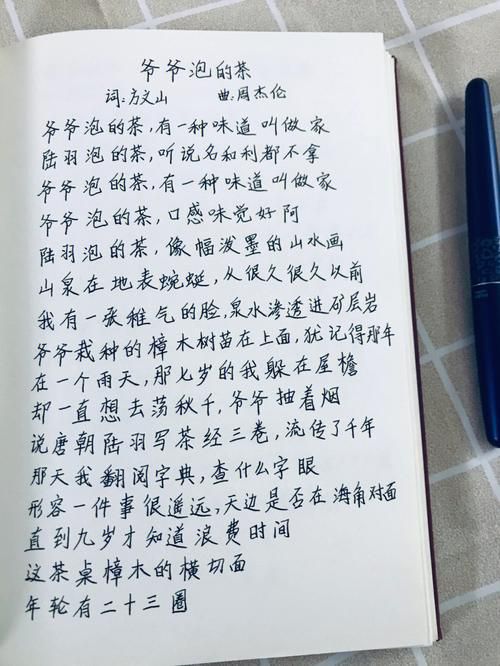 爷爷泡的茶
词:方文山 曲:周杰伦
爷爷泡的茶,有一种味道叫做家
陆羽泡的茶,听说名和利都不拿
爷爷泡的茶,有一种味道叫做家
爷爷泡的茶,口感味觉好阿
陆羽泡的茶,像幅泼墨的山水画
山泉在地表蜿蜒,从很久很久以前
我有一张稚气的脸,泉水渗透进矿层岩
爷爷栽种的樟木树苗在上面,犹记得那年
在一个雨天,那七岁的我躲在屋檐
却一直想去荡秋千,爷爷抽着烟
说唐朝陆羽写茶经三卷,流传了千年
那天我翻阅字典,查什么字眼
形容一件事很遥远,天边是否在海角对面
直到九岁才知道浪费时间
这茶桌樟木的横切面
年轮有二十三圈